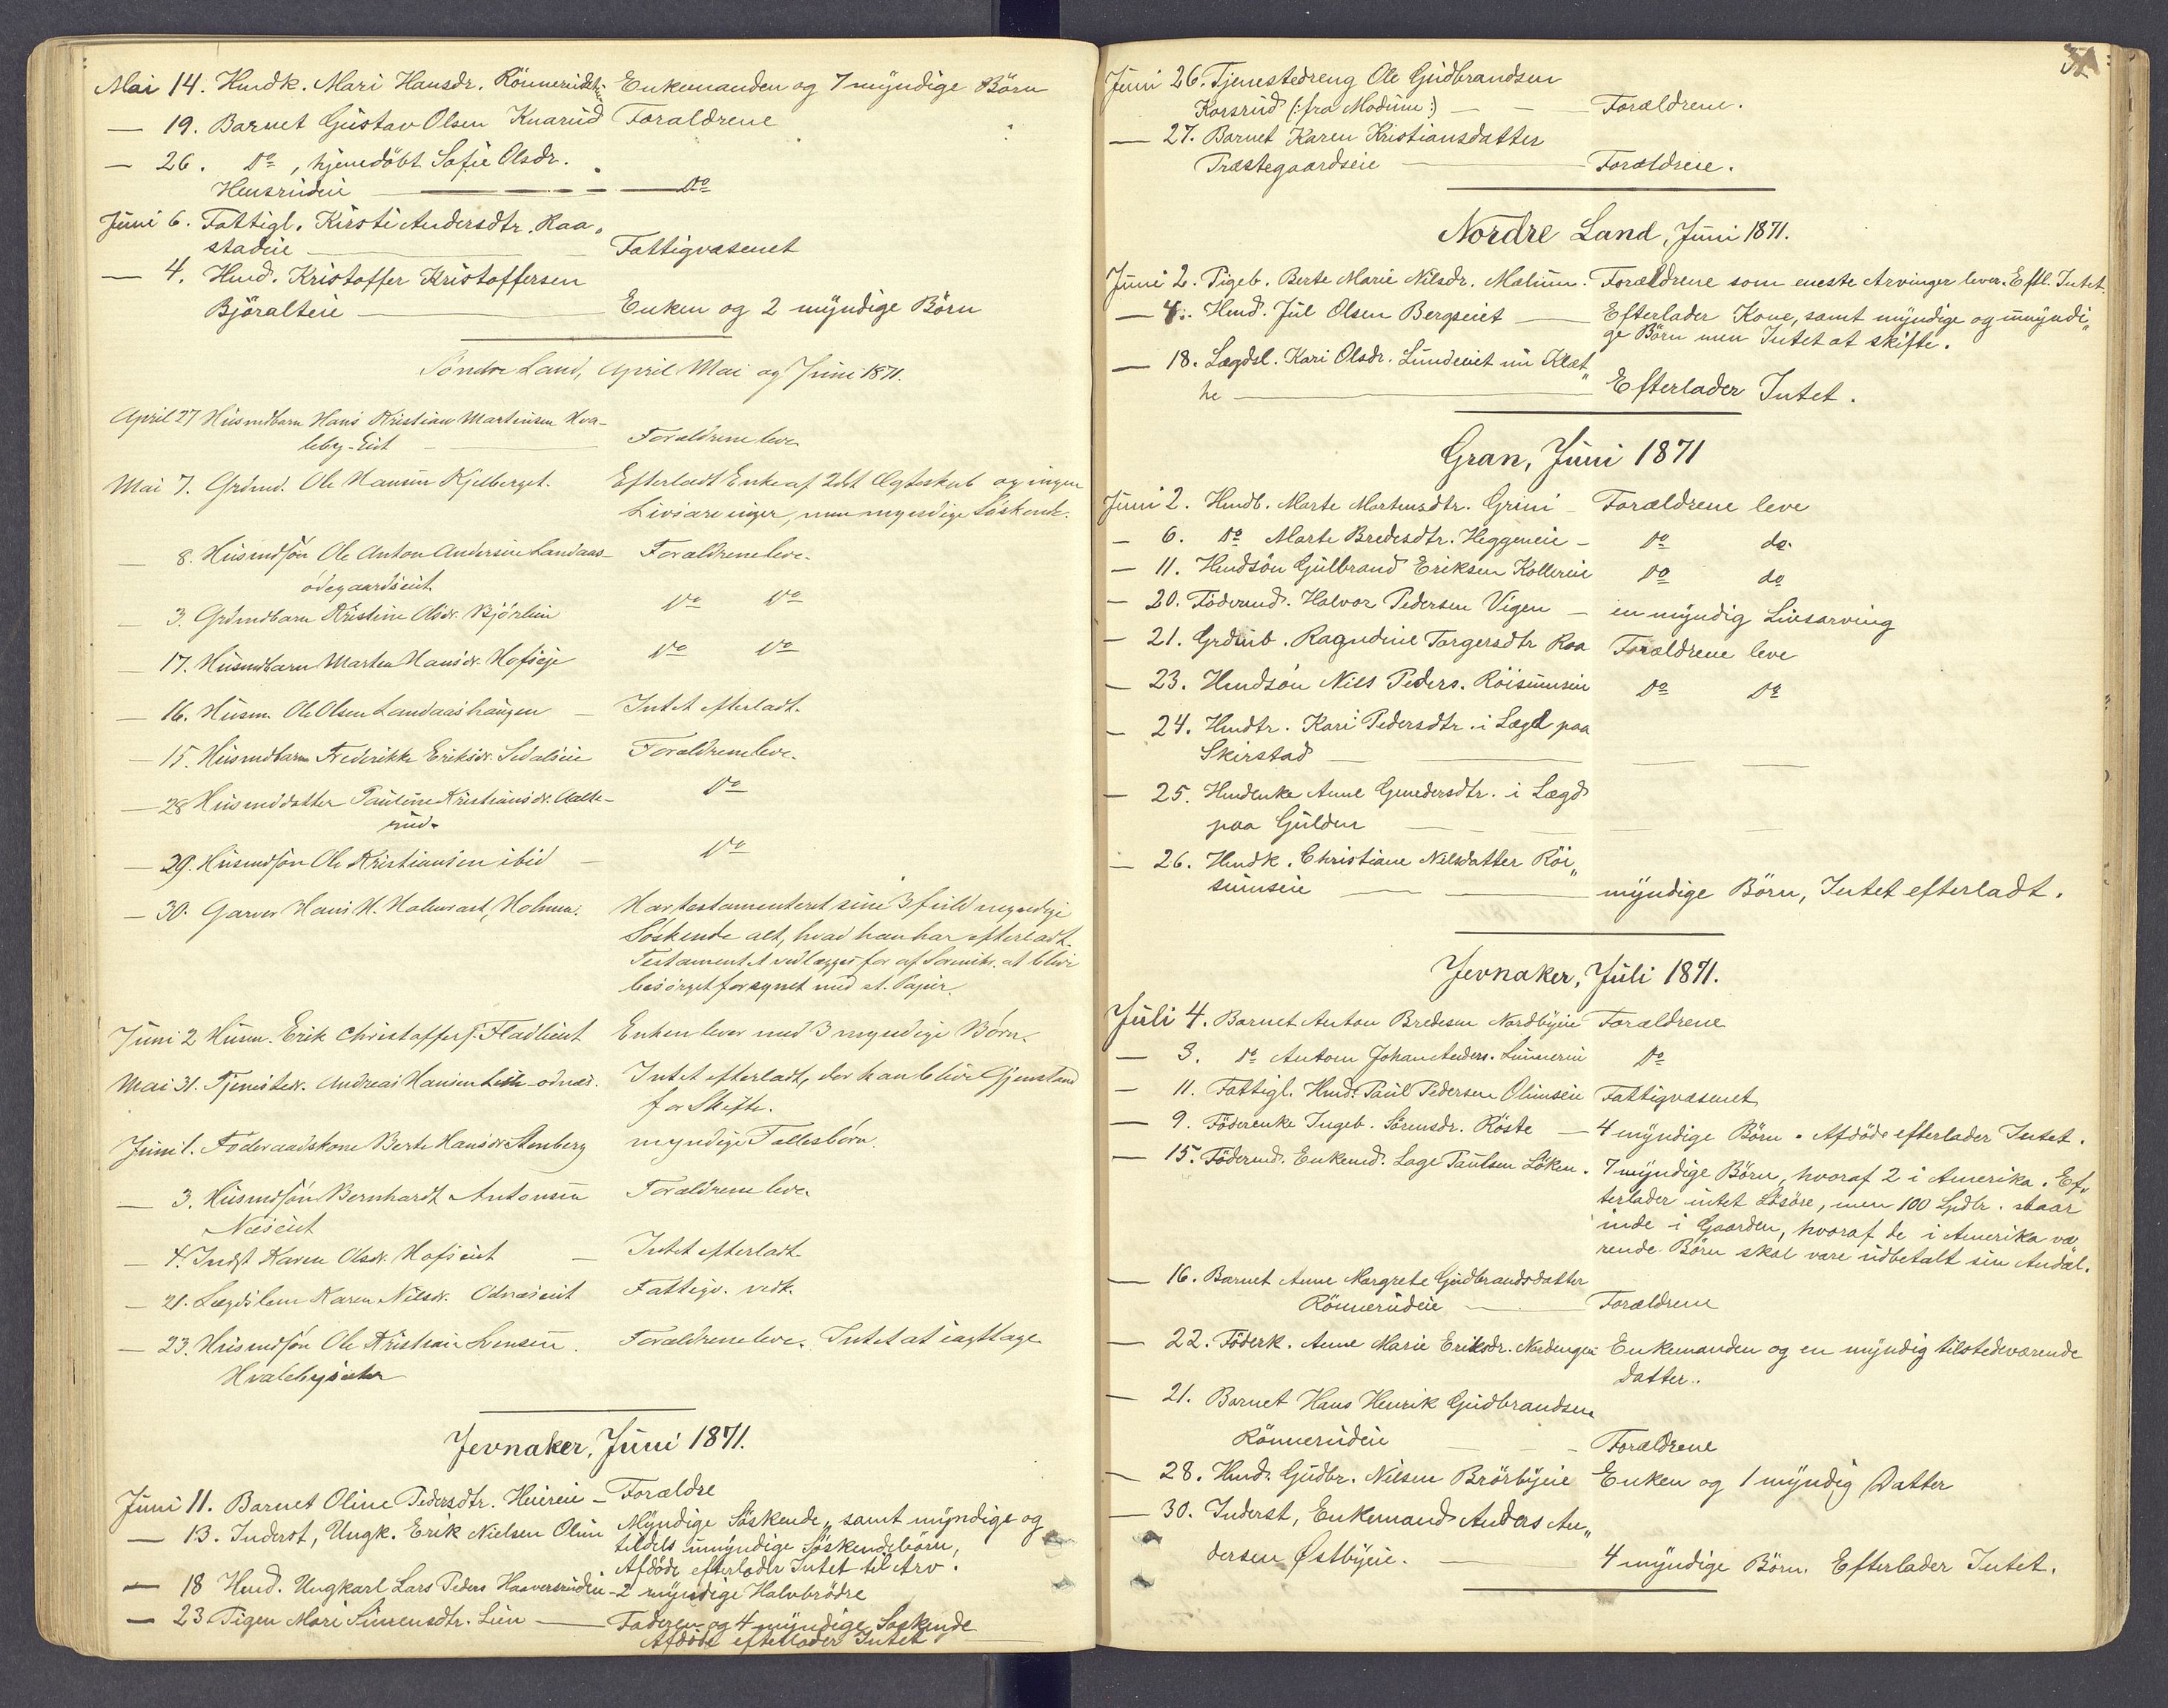 Mai 14. Hmdk. Mari Hansdr. Rönnerudei Enkemanden og 7 myndige Börn
— 19. Barnet Gustav Olsen Knarud Forældrene
— 26. Do, hjemedöbt Sofie Olsdr.
Hensrudeie — Do
Juni 6. Fattigl. Kirsti Andersdtr. Raa„
stadeie — Fattigvæsenet
— 4. Hmd. Kristoffer Kristoffersen
Björalteie — Enken og 2 myndige Börn
Söndre Land, April Mai og Juni 1871.
April 27 Husmdbarn Hans Kristian Martinsen Hva-
leby-Eiet — Forældrene leve.
Mai 7. Grdmd. Ole Hansen Kjelberget. Efterladt Enke af 2det Ægteskab og ingen
Livsarvinger, men myndige Söskende.
— 8. Husmdsön Ole Anton Andersen Landaas- Forældrene leve.
ödegaardseiet
— 3. Grdmdbarn Kristine Olsdr. Björlien Do Do
— 17. Husmdbarn Marten Hansdr. Hofseje Do Do
— 16. Husm. Ole Olsen Landaashaugen — Intet efterladt.
— 15. Husmdbarn Frederikke Eriksdr. Sedalseie Forældrene leve.
— 28 Husmddatter Pauline Kristiansdr. Aalte- Do
rud.
— 29. Husmdsön Ole Kristiansen ibid — Do
— 30. Garver Hans H. Halvorsrt, Holmen. Har testamenteret sine 3 fuld myndige
Söskende alt, hvad han har efterladt.
Testamentet vedlægges for af Sorenskr. at blive
besörget forsynet med st. Papir.
Juni 2 Husm. Erik Christoffers. Fladlieiet Enken lever med 3 myndige Börn.
Mai 31. Tjenestedr. Andreas Hansen Lisle-odnæs. Intet efterladt, der kan blive Gjenstand
for Skifte.
Juni 1. Föderaadskone Berte Hansdr. Stenberg myndige Fællesbörn.
— 3. Husmdsön Bernhardt Antonsen Forældrene leve.
Næseiet
— 4. Indst Karen Olsdr. Hofseiet — Intet efterladt
— 21. Lægdslem Karen Nilsdr. Odnæseiet Fattigv. vedk.
— 23. Husmdsön Ole Kristian Svensen. Forældrene leve. Intet at iagttage
Hvalebyseter
Jevnaker, Juni 1871.
Juni 11. Barnet Oline Pedersdtr. Heiereie — Forældre
— 13. Inderst, Ungk. Erik Nielsen Olum Myndige Söskende, samt myndige og
tildels umyndige Söskendebörn,
Afdöde efterlader Intet til Arv.
— 18 Hmd. Ungkarl Lars Peders Haaversrudeie — 2 myndige Halvbrödre
— 23 Pigen Mari Simensdtr. Lien — Faderen og 4 myndige Söskende
Afdöde efterlader Intet
Juni 26. Tjenestedreng Ole Gudbrandsen
Korsrud (: fra Modum :) — Forældrene.
— 27. Barnet Karen Kristiansdatter
Præstegaardseie — Forældrene.
Nordre Land, Juni 1871.
Juni 2. Pigeb. Berte Marie Nilsdr. Mælum. Forældrene som eneste Arvinger lever. Eftl. Intet.
— 4. Hmd. Jul Olsen Bergseiet — Efterlader Kone, samt myndige og umyndi„
ge Börn men Intet at skifte.
— 18. Lægdsl. Kari Olsdr. Lundeeiet nu Klæt„
he — Efterlader Intet.
Gran, Juni 1871
Juni 2. Hmdb. Marte Mortensdtr. Grini — Forældrene leve
— 6. Do Marte Bredesdtr. Heggeneie — Do do.
— 11. Hmdsön Gulbrand Eriksen Kollereie Do do
— 20. Födermd. Halvor Pedersen Vigen — en myndig Livsarving
— 21. Grdmb. Ragndine Torgersdtr Raa Forældrene leve
— 23. Hmdsön Nils Peders. Röisumseie Do Do
— 24. Hmdtr. Kari Pedersdtr. i Lægd paa
Skirstad —
— 25. Hmdenke Anne Gunedersdtr. i Lægd
paa Gulden —
— 26. Hmdk. Christiane Nilsdatter Röi„
sumseie — myndige Börn, Intet efterladt.
Jevnaker, Juli 1871.
Juli 4. Barnet Anton Bredesen Nordbyeie Forældrene
— 3. Do Antom Johan Anders. Lunnereie Do
— 11. Fattigl. Hmd. Paul Pedersen Olimseie Fattigvæsenet
— 9. Föderenke Ingeb. Sörensdr. Röste — 4 myndige Börn. Afdöde efterlader Intet.
— 15. Födermd. Enkemd. Lage Paulsen Löken. 7 myndige Börn, hvoraf 2 i Amerika. Ef„
terlader intet Lösöre, men 100 Spdlr. staar
inde i Gaarden, hvoraf de i Amerika væ
rende Börn skal være udbetalt sin Andel.
— 16. Barnet Anne Margrete Gudbrandsdatter
Rönnerudeie — Forældrene
— 22. Föderk. Anne Marie Eriksdr. Nordengen Enkemanden og en myndig tilstedeværende
Datter.
— 21. Barnet Hans Henrik Gudbrandsen
Rönnerudeie — Forældrene
— 28. Hmd. Gudbr. Nilsen Brörbyeie Enken og 1 myndig Datter
— 30. Inderst, Enkemand Anders An„
dersen Østbyeie. — 4 myndige Börn. Efterlader Intet.